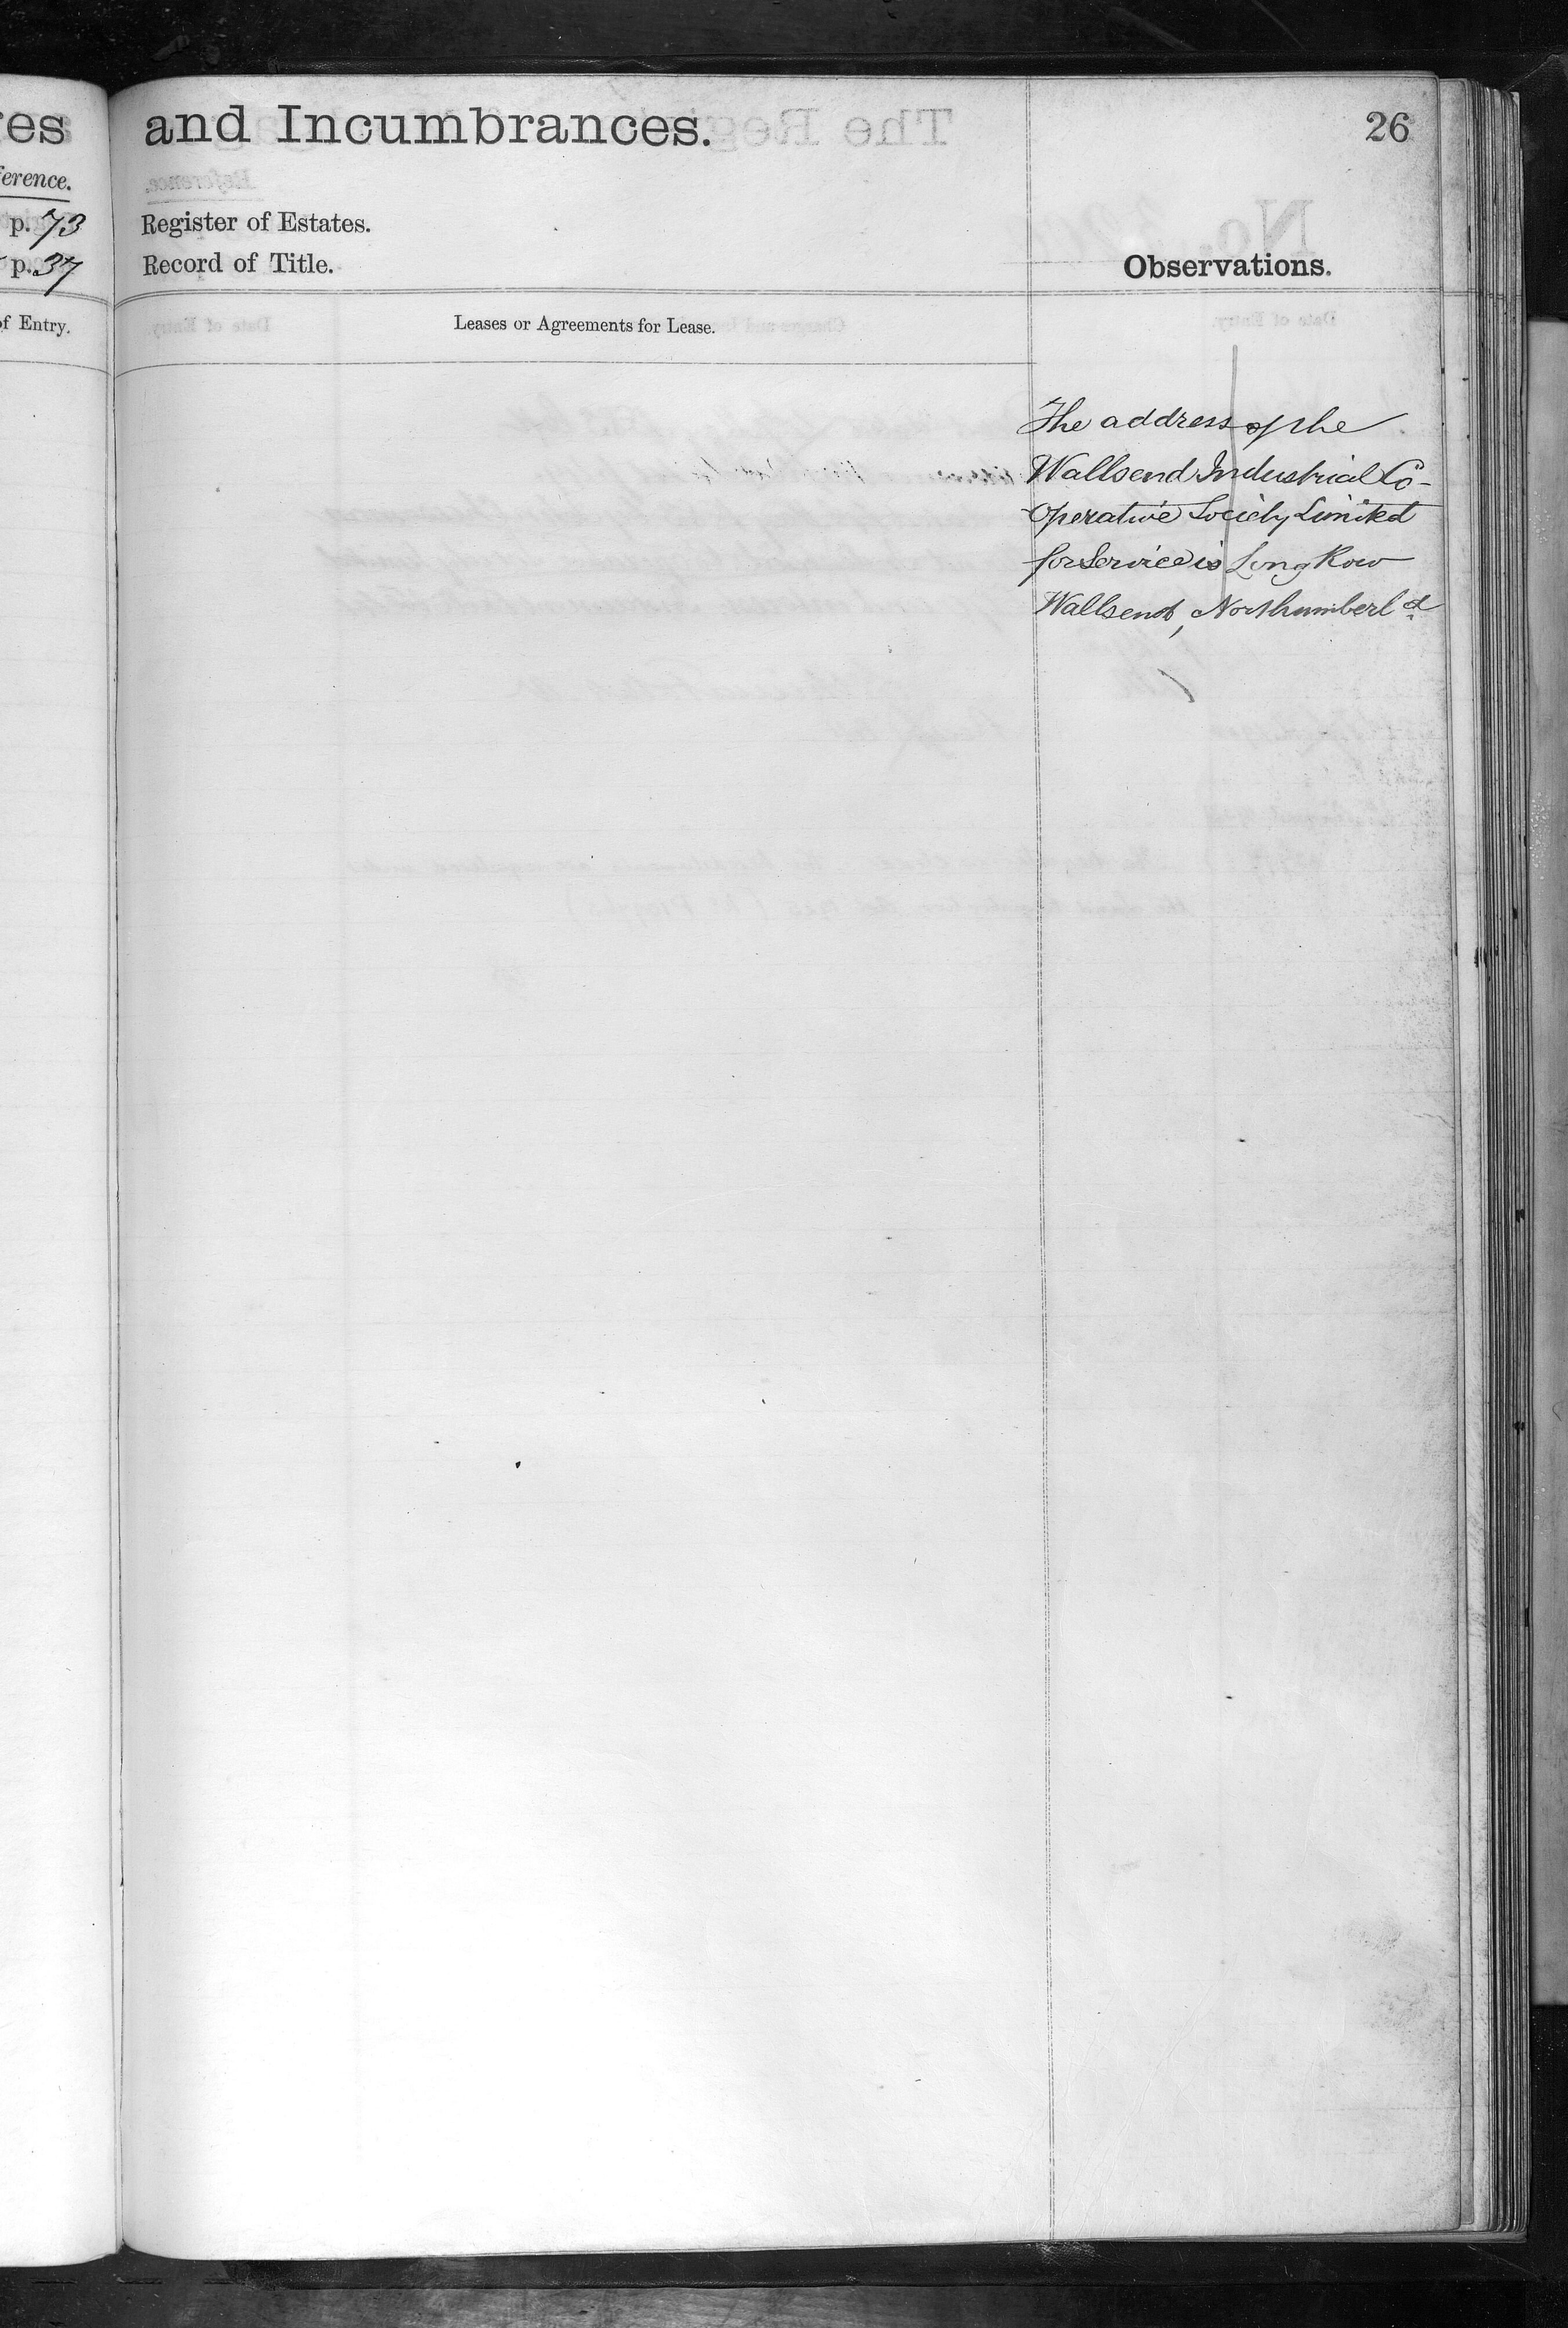 es and Incumbrances. 26
erence.
p. 73 Register of Estates.
p. 37 Record of Title.
Observations.
of Entry. Leases or Agreements for Lease.
The address of the
Wallsend Industrial Co-
operative Society Limited
for Service is Long Row
Wallsend, Northumberld